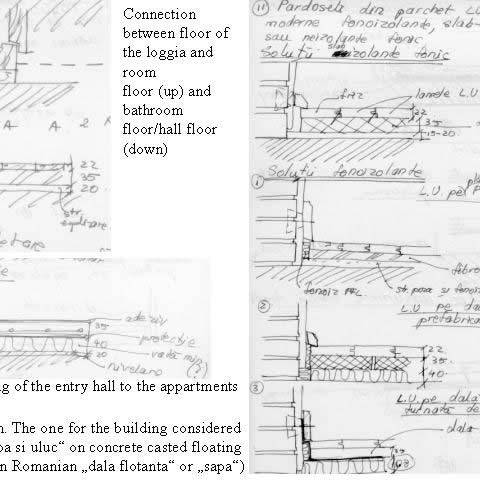 Connection
between floor of
the loggia and
room
floor (up) and
bathroom
floor/hall floor
(down)
A A 2
22
35
20
str.
egalizare
adeziv
35
protectie
40
vata min
20
nivelare
(2)
g of the entry hall to the appartments
n. The one for the building considered
ba si uluc“ on concrete casted floating
n Romanian „dala flotanta“ or „sapa“)
11) Pardoseli din parchet L.U
moderne fonoizolante, slab
sau neizolante fonic,
Soluții slab izolante fonic
friz lamele L.U
22
35
15-20
Soluții fonoizolante
1 L.U. pe
fibro
fonoiz PFL str. poza si fonoiz
2 L.U pe da
prefabrica
22
35
40
3 L.U. pe dala
turnata de
dala